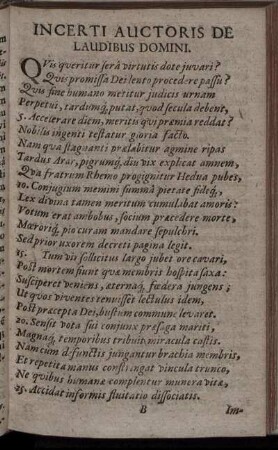 INCERTI AUCTORIS DE
LAUDIBUS DOMINI.
QVis queritur serâ virtutis dote juvari?
Quis promissa Dei lento procedere passu?
Quis sine humano metitur judicis urnam
Perpetui, tardumq́, putat, quod secula debent,
5. Accelerare diem, meritis qui præmia reddat?
Nobilis ingenti testatur gloria facto.
Nam qua stagnanti prælabitur agmine ripas
Tardus Arar, pigrumq́, diu vix explicat amnem,
Qua fratrum Rhemo progignitur Hedua pubes,
10. Conjugium memini summâ pietate fideq́,
Lex divina tamen meritum cumulabat amoris:
Votum erat ambobus, socium præcedere morte,
Mæroriq́, pio curam mandare sepulchri.
Sed prior uxorem decreti pagina legit.
15. Tum vir sollicitus largo jubet ore cavari,
Post mortem fiunt quæ membris hospita saxa:
Susciperet veniens, æternaq́, fœdera jungens;
Ut quos viventes tenuisset lectulus idem,
Post præcepta Dei, bustum commune levaret.
20. Sensit vota sui conjux præsaga mariti,
Magnaq́, temporibus tribuit miracula castis.
Nam cum defunctis jungantur brachia membris,
Et repetita manus constringat vincula trunco,
Ne quibus humanæ complentur munera vitæ,
25. Accidat informis fluitatio dissociatis.
B Im-